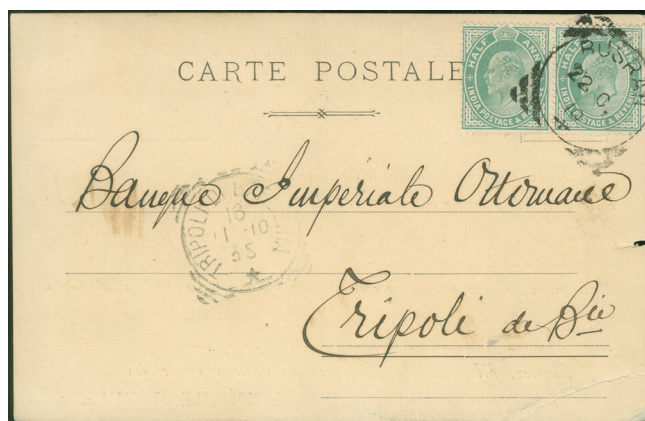 CARTE POSTALE
HALF ANNA
INDIA POSTAGE & REVENUE
HALF ANNA
INDIA POSTAGE & REVENUE
BUSRAH
Banque Impériale Ottomane
TRIPOLI
Tripoli de Bie